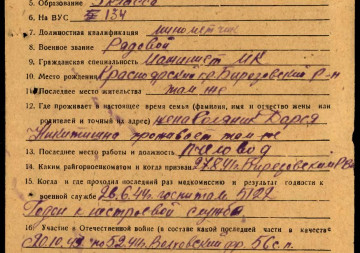 5. Образование 3 класса
6. На ВУС № 134
7. Должностная квалификация миномётчик
8. Военное звание Рядовой
9. Гражданская специальность Машинист МК
10. Место рождения Красноярский кр. Бирилюсский р-н
11. Последнее место жительства там же
12. Где проживает в настоящее время семья (фамилия, имя и отчество жены или
родителей и точный их адрес) жена Дарья
Никитишна проживает там же
13. Последнее место работы и должность пчеловод
14. Каким горрайвоенкоматом и когда призван 27.8.41г.
15. Когда и где проходил последний раз медкомиссию и результат годности к
военной службе 26.6.44г. госпиталь 5122
Годен к нестроевой службе
16. Участие в Отечественной войне (в составе какой последней части и в качестве
Волховский фр.